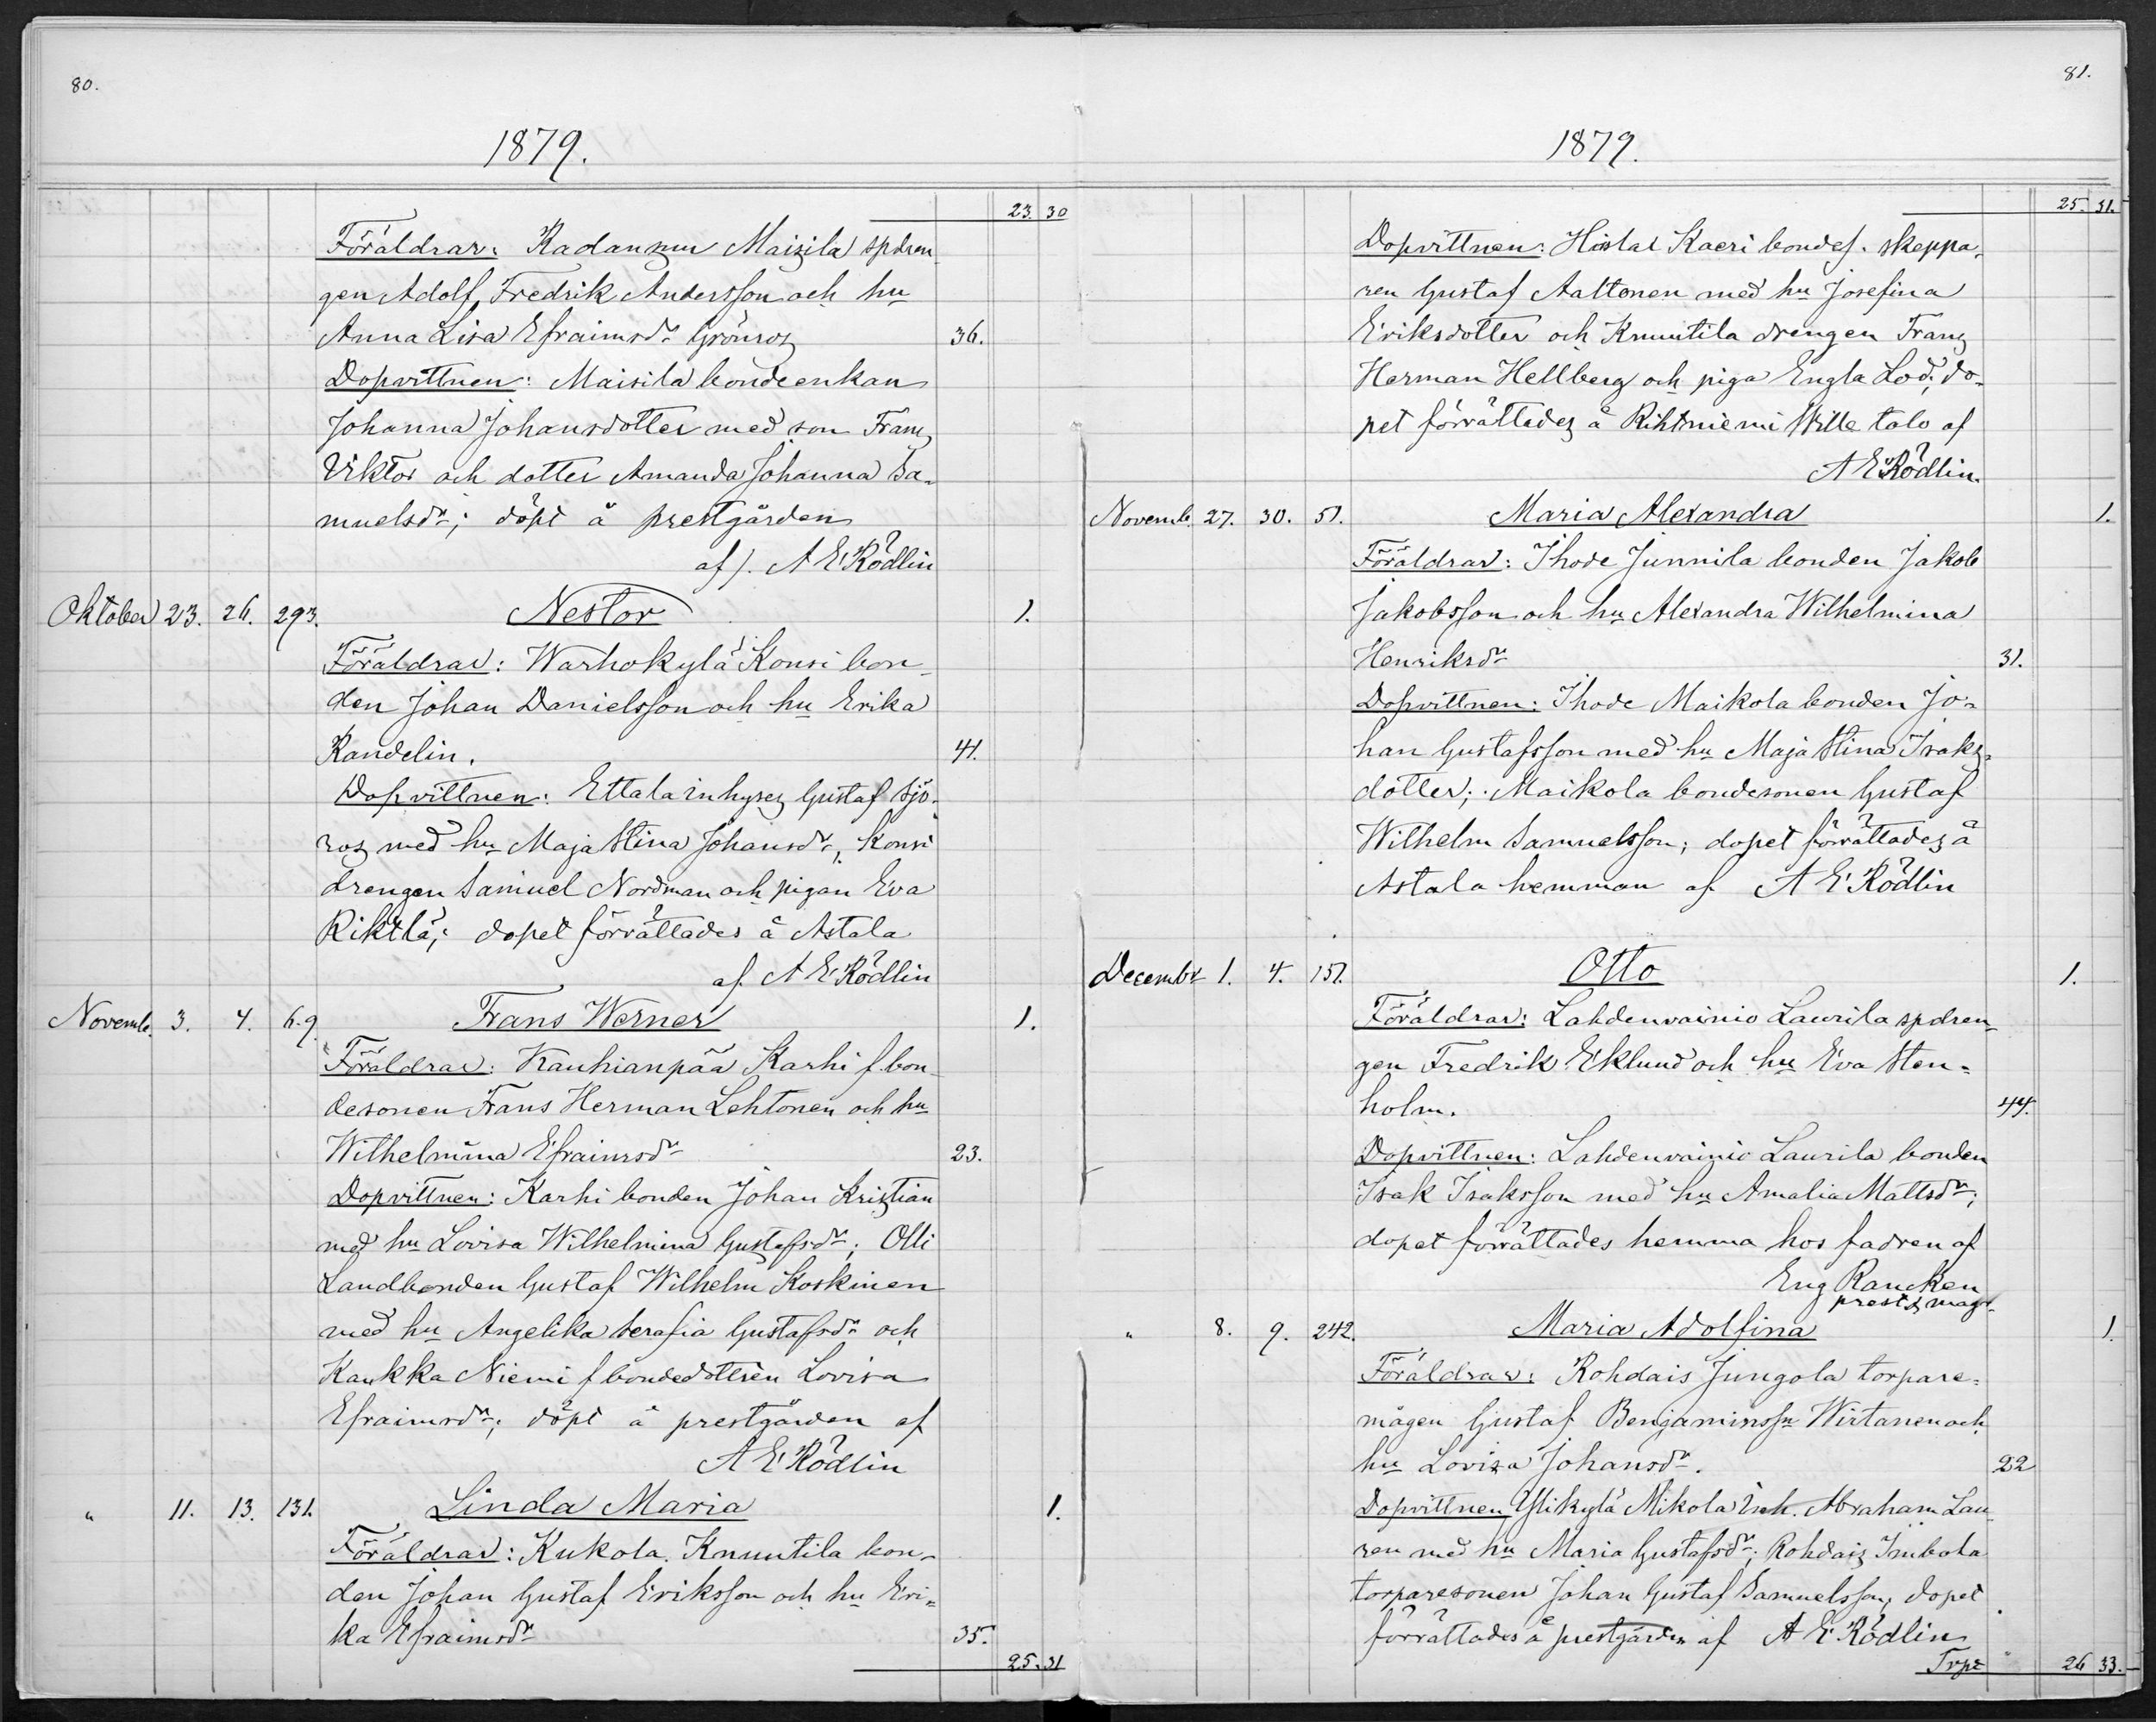 80.
1879.
23. 30
Föräldrar: Radansuu Maisila spdren
gen Adolf Fredrik Andersson och hu
Anna Lisa Efraimsdr Grönros 36.
Dopvittnen: Maisila bondeenkan
Johanna Johansdotter med son Frans
Viktor och dotter Amanda Johanna Sa-
muelsdr; döpt å prestgården
af). A E Rödlin
Oktober 23. 26. 293. Nestor 1.
Föräldrar: Warhokylä Konsi bon-
den Johan Danielsson och hu Erika
Randelin. 41.
Dopvittnen: Ettala inhyses Gustaf Sjö-
ros med hu Maja Stina Johansdr, Konsi
drengen Samuel Nordman och pigan Eva
Riktlä; dopet förrättades å Astala
af. A E Rödlin
Novemb. 3. 4. 69. Frans Werner 1.
Föräldrar: Kauhianpää Karhi f. bon-
desonen Frans Herman Lehtonen och hu
Wilhelmina Efraimsdr 23.
Dopvittnen: Karhi bonden Johan Kristian
med hu Lovisa Wilhelmina Gustafsdr; Olli
Landbonden Gustaf Wilhelm Koskinen
med hu Angelika Serafia Gustafsdr och
Kaukka Niemi f bondedottren Lovisa
Efraimsdr; döpt å prestgården af
A E Rödlin
" 11. 13. 131. Linda Maria 1.
Föräldrar: Kukola Knuutila bon-
den Johan Gustaf Eriksson och hu Eri-
ka Efraimsdr 35.
25. 31
81.
1879.
25. 31.
Dopvittnen: Kaeri bondes. skeppa-
ren Gustaf Aaltonen med hu Josefina
Eriksdotter och Knuutila drengen Frans
Herman Hellberg och piga Engla Lod; do-
pet förrättades å Rihtniemi Wille talo af
A E Rödlin.
Novemb. 27. 30. 51. Maria Alexandra 1.
Föräldrar: Ihode Junnila bonden Jakob
Jakobsson och hu Alexandra Wilhelmina
Henriksdr 31.
Dopvittnen: Ihode Maikola bonden Jo-
han Gustafsson med hu Maja Stina Isaks-
dotter; Maikola bondesonen Gustaf
Wilhelm Samuelsson; dopet förrättades å
Astala hemman af. A E Rödlin
Decembr 1. 4. 151. Otto 1.
Föräldrar: Lahdenvainio Laurila spdren-
gen Fredrik Eklund och hu Eva Sten-
holm. 44.
Dopvittnen: Lahdenvainio Laurila bonden
Isak Isaksson med hu Amalia Mattsdr;
dopet förrättades hemma hos fadren af
Eug Rancken
prest & mag.
" 8. 9. 242. Maria Adolfina 1
Föräldrar: Rohdais Jungola torpare-
mågen Gustaf Benjaminssn Wirtanen och
hu Lovisa Johansdr. 22
Dopvittnen Ylikylä Mikola Inh. Abraham Lau-
ren med hu Maria Gustafsdr; Rohdais Imbola
torparesonen Johan Gustaf Samuelsson, dopet
förrättades å prestgården af A E Rödlin
Trpt 26 33.